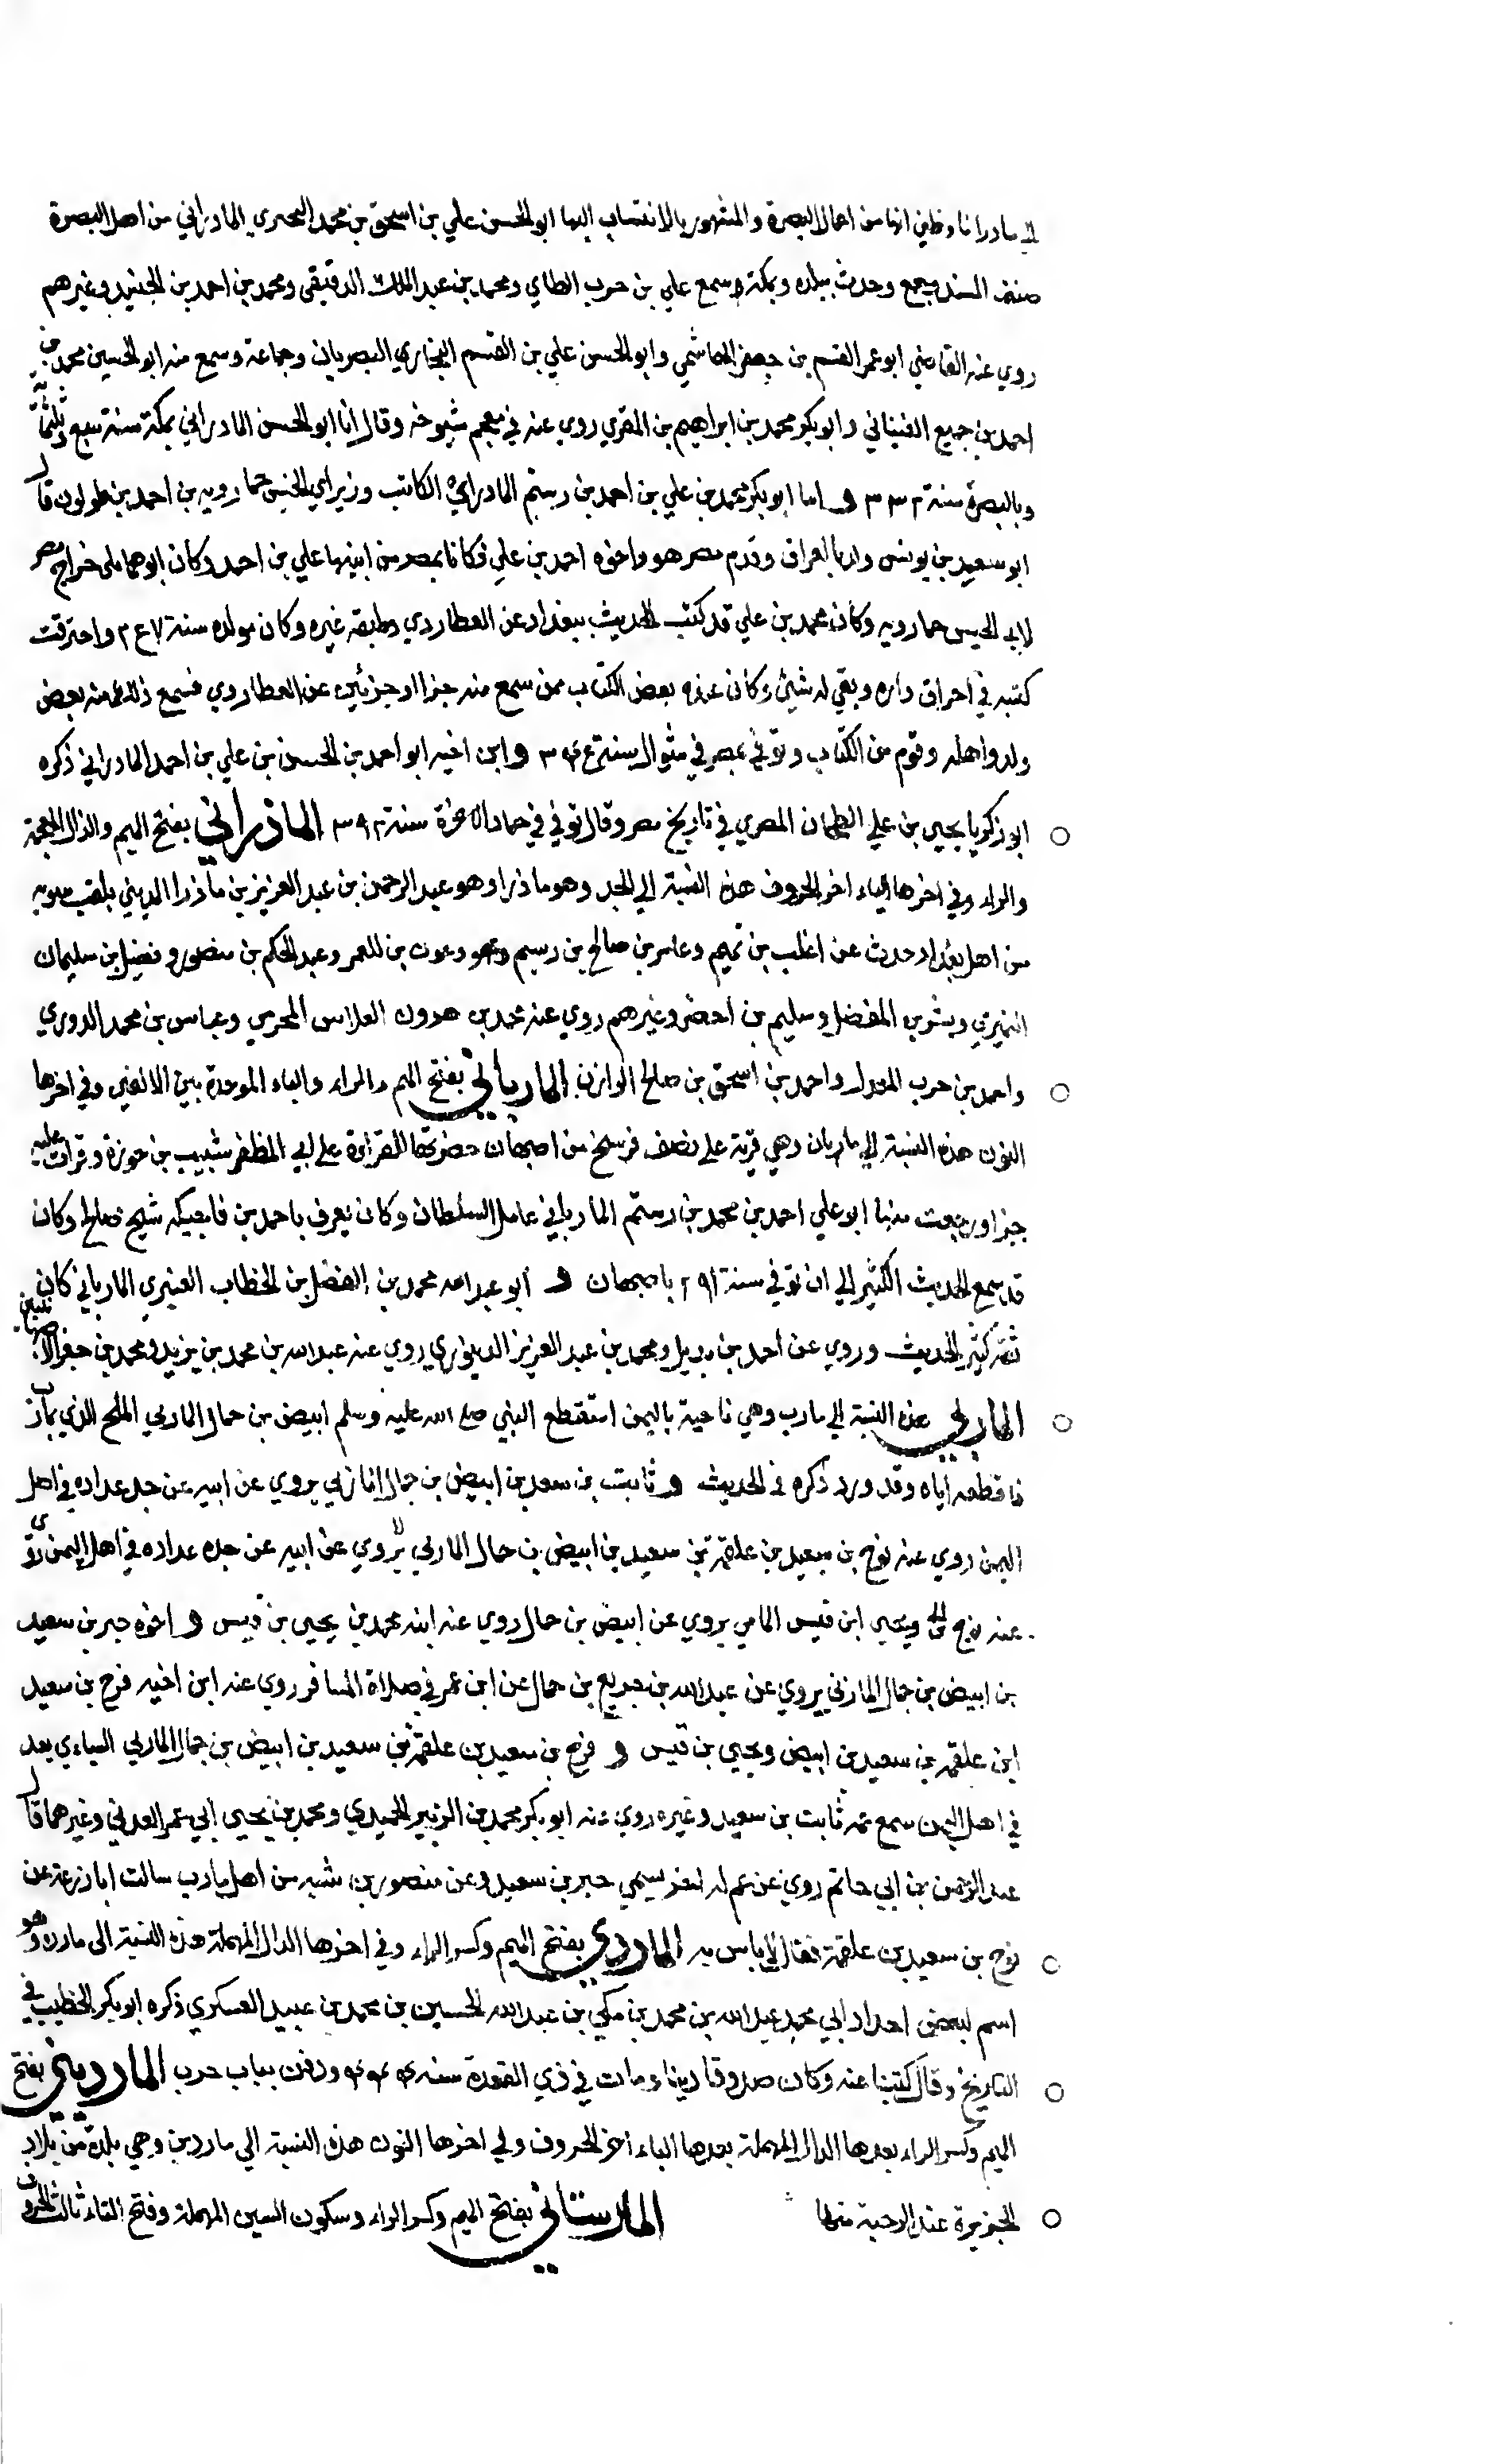 الى مادرانا وظني انها من اعمال البصرة والمشهور بالانتساب اليها ابو الحسن علي بن اسحق بن محمد البحتري المادراني من اهل البصرة
صنف المسند وجمع وحدث ببلده وبمكة وسمع علي بن حرب الطاي ومحمد بن عبد الملك الدقيقي ومحمد بن احمد بن الجنيد وغيرهم
روي عنه القاضي ابو عمر القسم بن جعفر الهاشمي وابو الحسن علي بن القسم النجاري البصريان وجماعة وسمع منه ابو الحسين محمد بن
احمد بن جميع الغساني وابو بكر محمد بن ابراهيم بن المقري روي عنه في معجم شيوخه وقال انا ابو الحسن المادراني بمكة سنة سبع وثلثمائة
وبالبصرة سنة ٣٣٢ و اما ابو بكر محمد بن علي بن احمد بن رستم المادرايي الكاتب وزير ابي الجيش خمارويه بن احمد بن طولون قال
ابو سعيد بن يونس ولد بالعراق وقدم مصر هو واخوه احمد بن علي فكانا بمصر من ابيهما علي بن احمد وكان ابوهما ملي خراج مصر
لابي الجيس خمارويه وكان محمد بن علي قد كتب الحديث ببغداد عن العطاردي وطبقة غيره وكان مولده سنة ٢٤٧ واحترقت
كتبه في احراق داره وبقي له شيئ وكان عند بعض الكتاب ممن سمع منه جزا او جزئين عن العطاردي فسمع ذلك منه بعض
ولده واهله وقوم من الكتاب وتوفي بمصر في شوال سنة ٣٤٥ و ابن اخيه ابو احمد بن الحسن بن علي بن احمد المادراني ذكره
ابو زكريا يحيي بن علي الطحان المصري في تاريخ مصر وقال توفي في جماد الاخرة سنة ٣٩٢ الماذراني بفتح الميم والذال المعجمة
والراء وفي اخرها الياء اخر الحروف هذه النسبة الي الجد وهو ماذرا وهو عبد الرحمن بن عبد العزيز بن ماذرا المديني يلقب سبويه
من اهل بغداد حدث عن اغلب بن تميم وعامر بن صالح بن رسيم وعون بن المعمر وعبد الحكم بن منصور وفضيل بن سليمان
النميري وبشر بن المفضل وسليم بن اخضر وغيرهم روي عنه محمد بن هرون الفلاس المخرمي وعباس بن محمد الدوري
واحمد بن حرب المعدل واحمد بن اسحق بن صالح الوازن المارباني بفتح الميم والراء والباء الموحدة بين الالفين وفي اخرها
النون هذه النسبة الي ماربان وهي قرية علي نصف فرسخ من اصبهان حضرتها للقراءة علي ابي المظفر شبيب بن خورة وقرات عليه
جزا ورجعت منها ابو علي احمد بن محمد بن رستم المارباني عامل السلطان وكان يعرف باحمد بن شيخ صالح وكان
قد سمع الحديث الكثير الي ان توفي سنة ٢٩١ باصبهان و ابو عبد الله محمد بن الفضل بن الخطاب العنبري المارباني كان
ثقة كثير الحديث وروي عن احمد بن بديل ومحمد بن عبد العزيز الدينوري روي عنه عبد الله بن محمد بن يزيد ومحمد بن جعفر الاصبهانيين
الماربي هذه النسبة الي مارب وهي ناحية باليمن استقطع النبي صلع الله عليه وسلم ابيض بن حمال الماربي الملح الذي بمارب
فاقطعه اياه وقد ورد ذكره في الحديث و ثابت بن سعد بن ابيض بن حمال المازني يروي عن ابيه عن جده عداده في اهل
اليمن روي عنه نوح بن سعيد بن علقمة بن سعيد بن ابيض بن حمال الماربي يروي عن ابيه عن جده عداده في اهل اليمن روي
عنه نوح ويحيي ابن قيس يروي عن ابيض بن حمال روي عنه ابنه محمد بن يحيي بن قيس و اخوه جبر بن سعيد
بن ابيض بن حمال المازني يروي عن عبد الله بن جريع بن حمال عن ابن عمر في صلاة المسافر روي عنه ابن اخيه فرح بن سعيد
ابن علقمة بن سعيد بن ابيض ويحيي بن قيس و فرح بن سعيد بن علقمة بن سعيد بن ابيض بن حمال الماربي السباءي يعد
في اهل اليمن سمع عمه ثابت بن سعيد وغيره روي عنه ابو بكر محمد بن الزبير الحميدي ومحمد بن يحيي ابي عمر العدني وغيرهما قال
عبد الرحمن بن ابي حاتم روي عن عم له اخر يسمي جبر بن سعيد وعن منصور بن شبه من اهل مارب سالت ابا زرعة عن
نوح بن سعيد بن علقمة فقال لا باس به الماردي بفتح الميم وكسر الراء وفي اخرها الدال المهملة هذه النسبة الى مارده وهو
اسم لبعض اجداد ابي محمد عبد الله بن محمد بن مكي بن عبد الله الحسين بن محمد بن عبيد العسكري ذكره ابو بكر الخطيب في
التاريخ وقال كتبنا عنه وكان صدوقا دينا ومات في ذي القعدة سنة ودفن بباب حرب المارديني بفتح
الميم وكسر الراء بعدها الدال المهملة بعدها الياء اخر الحروف وفي اخرها النون هذه النسبة الي ماردين وهي بلدة من بلاد
الجزيرة عند الرحبة منها المارستاني بفتح الميم وكسر الراء وسكون السين المهملة وفتح التاء ثالث الحروف